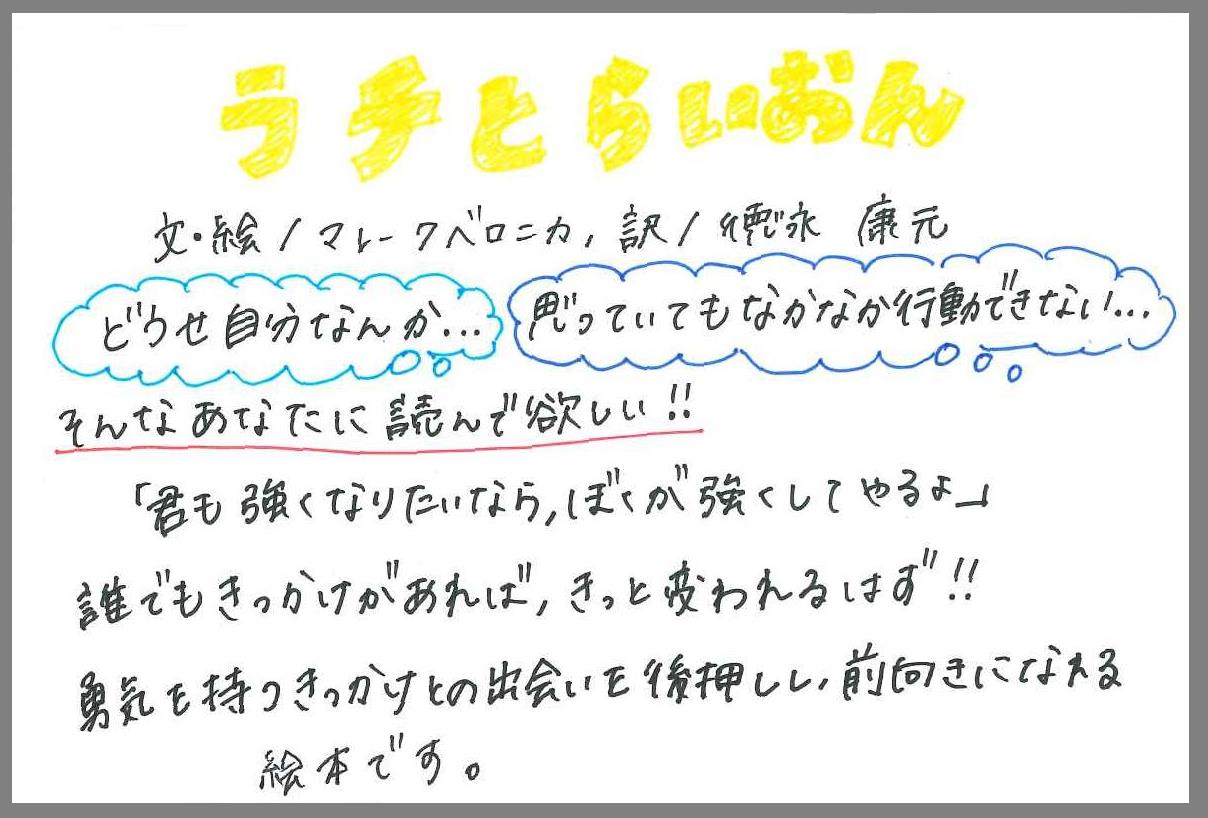 ラチとらいおん
文・絵/マレークベロニカ,訳/徳永 康元
どうせ自分なんか...
思っていてもなかなか行動できない...
そんなあなたに読んで欲しい!!
「君も強くなりたいなら,ぼくが強くしてやるよ」
誰でもきっかけがあれば,きっと変われるはず!!
勇気を持つきっかけとの出会いを後押しし,前向きになれる
絵本です。